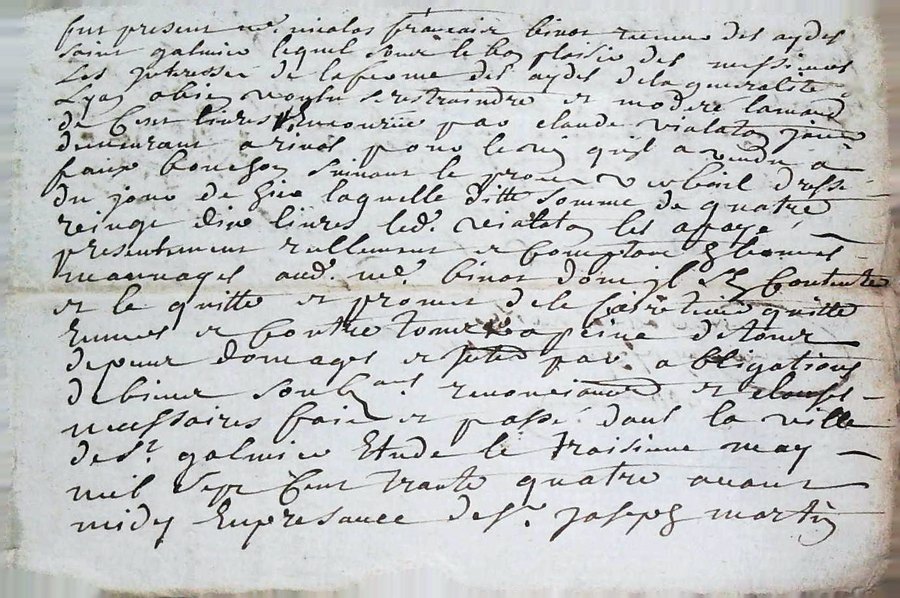 fut present me. nicolas francois binot receveur des aydes
saint galmier lequel sous le bon plaisir des messieurs
Les Interessé de la ferme des aydes de la generalité
Lyon a bien voulu restraindre et moderé lamand
de Cent livres Encourüe par claude vialaton
demeurant a pour le vin quil a vendu a
faux bouchon suivant le proces verbail dressé
du jour de hier laquelle ditte somme de quatre
vingt dix livres led. vialaton les a payé
presentement reellement et Comptant En bonnes
monnoyes aud. me. binot dont jl Se Contente
et le quitte et promet de le faire tenir quitte
Envers et Contre tous a peine de tous
depens domages et par obligations
de biens Soub. renonciations et clauses
necessaires fait et passé dans la ville
de St. galmier Etude le troisieme may
mil Sept Cent trante quatre avant
midy En presance de Sr. joseph martin